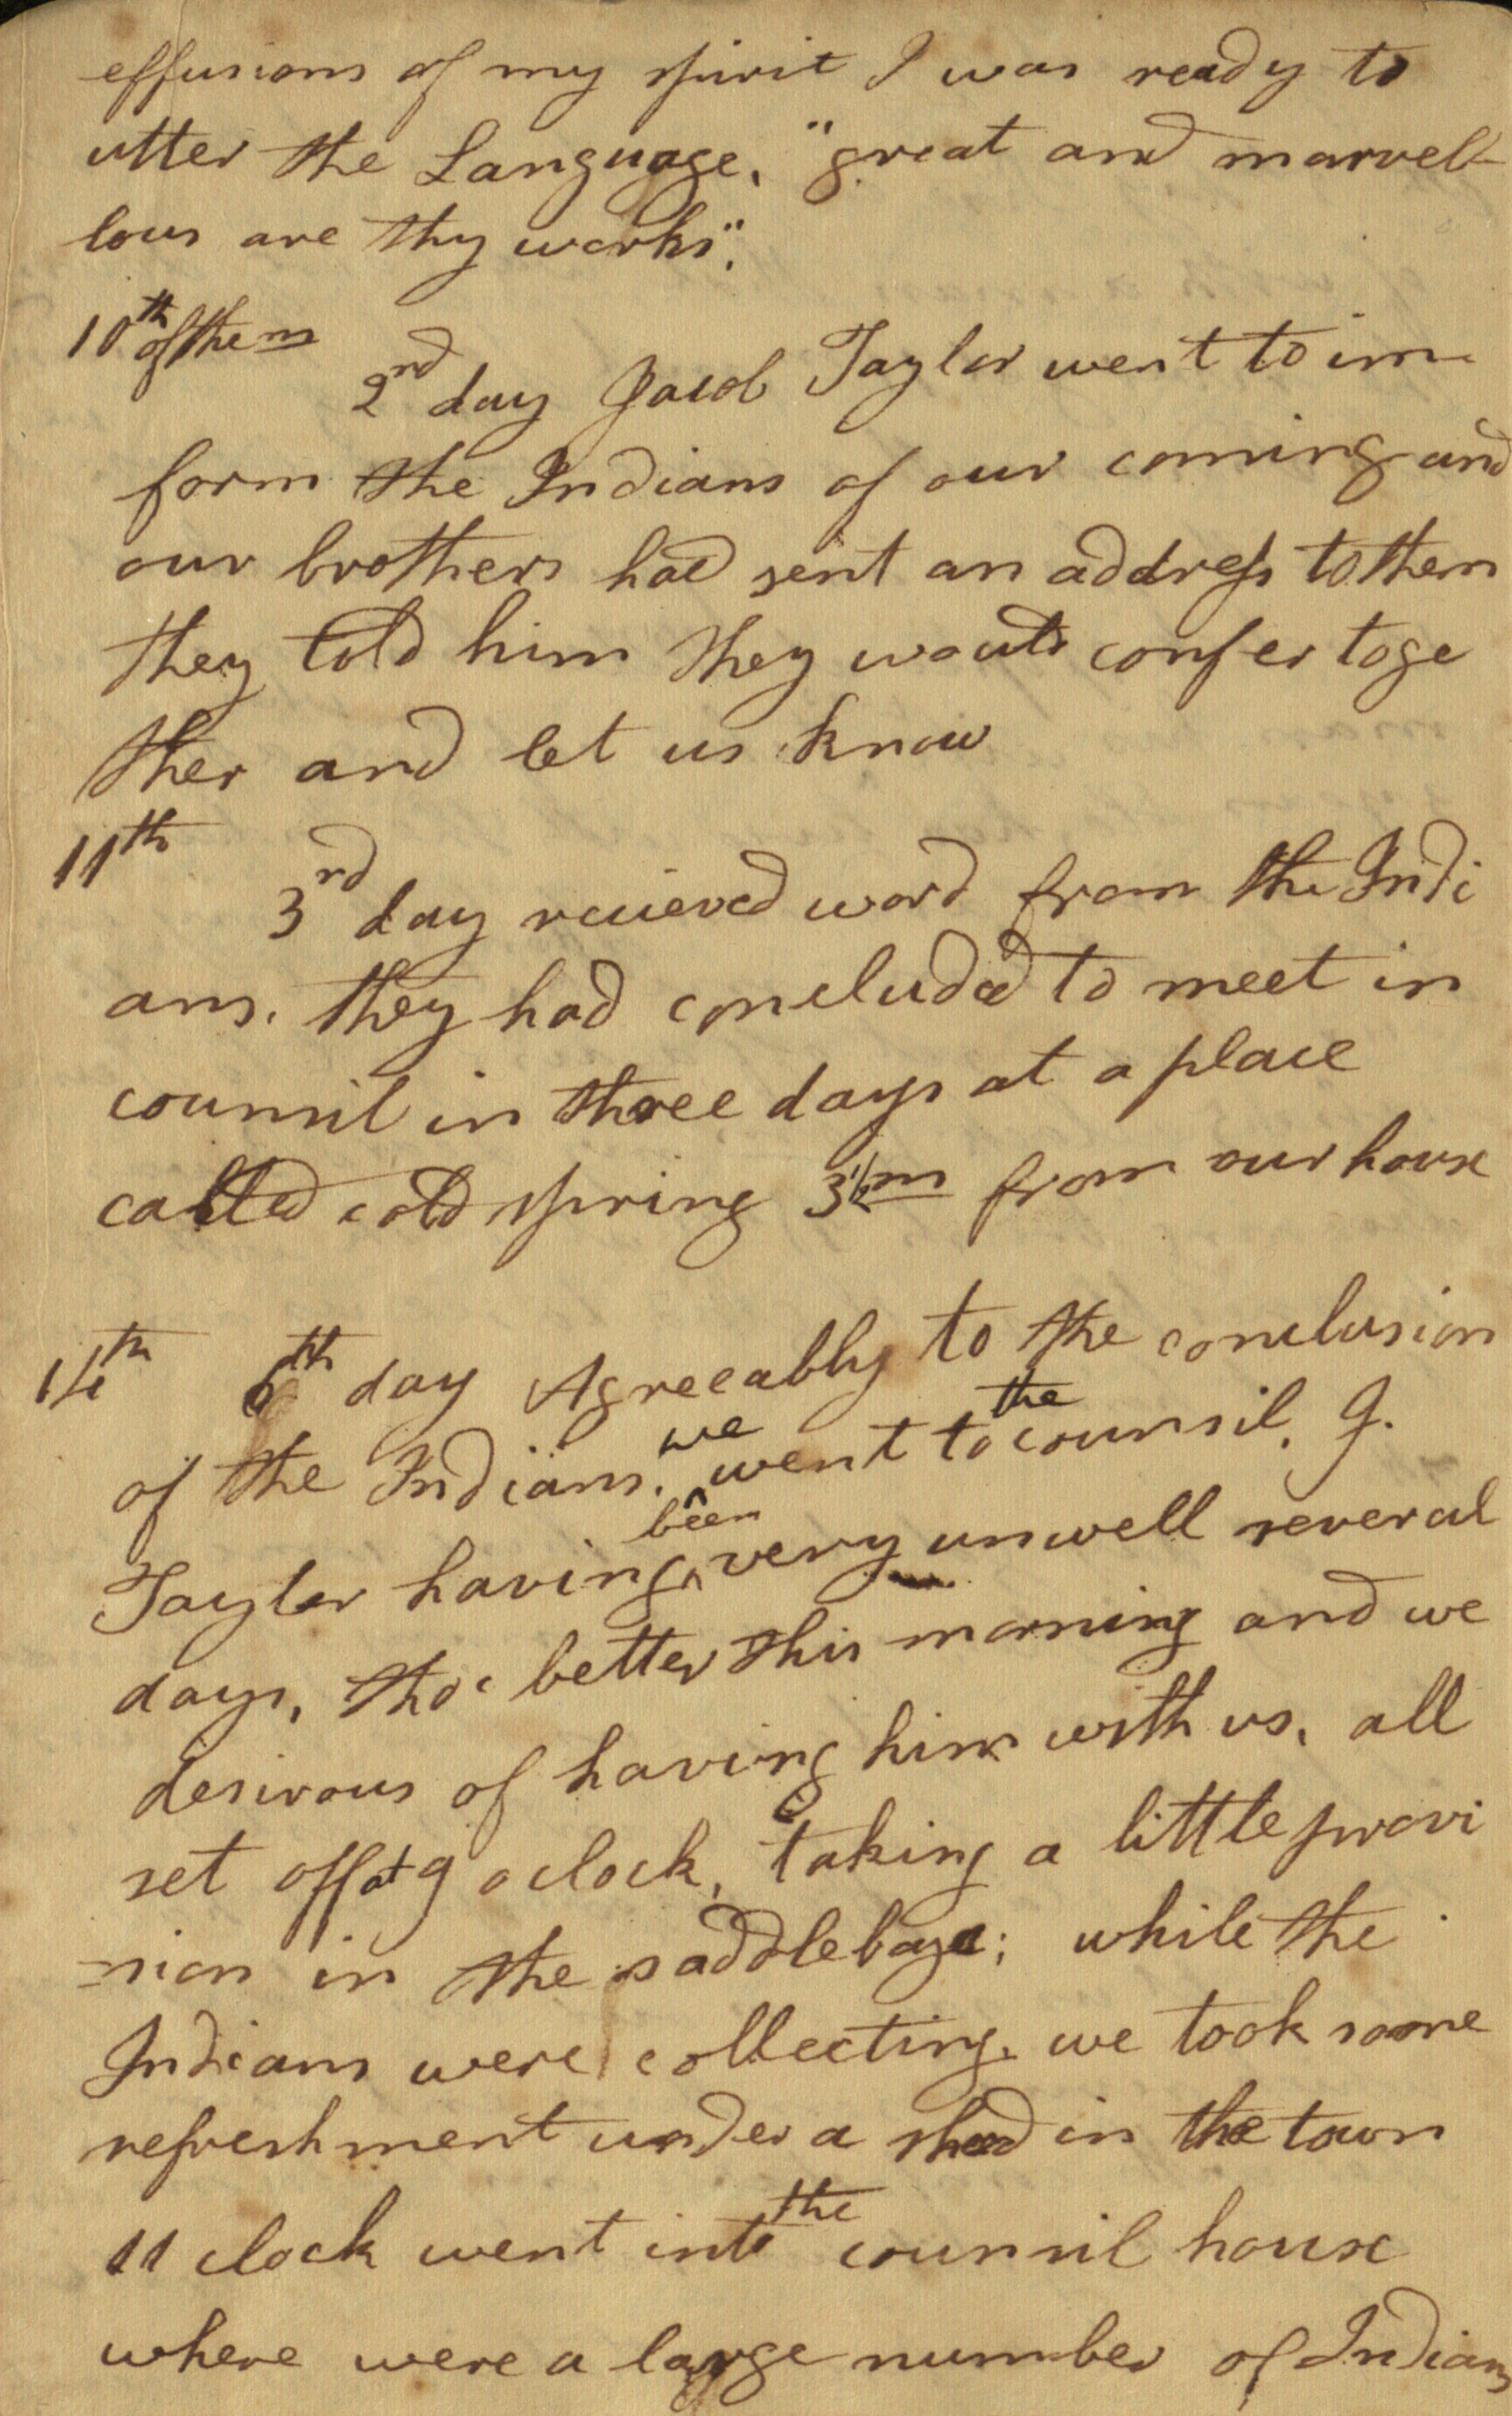 effusions of my spirit I was ready to
utter the Language, "great and marvel-
lous are thy works".
10th of the m
2nd day Jacob Taylor went to in-
form the Indians of our coming and
our brothers had sent an address to them
they told him they would confer toge
ther and let us know
11th
3rd day recieved word from the Indi
ans. they had concluded to meet in
counsil in three days at a place
called cold spring 3½m from our house
14th 6th day Agreeably to the conclusion
of the Indians. we went to the counsil. J.
Taylor having been very unwell several
days, tho' better this morning and we
desirous of having him with us, all
set off at 9 oclock, taking a little provi
-sion in the saddlebags; while the
Indians were collecting. we took some
refreshment under a shed in the town
11 clock went into the counsil house
where were a large number of Indians